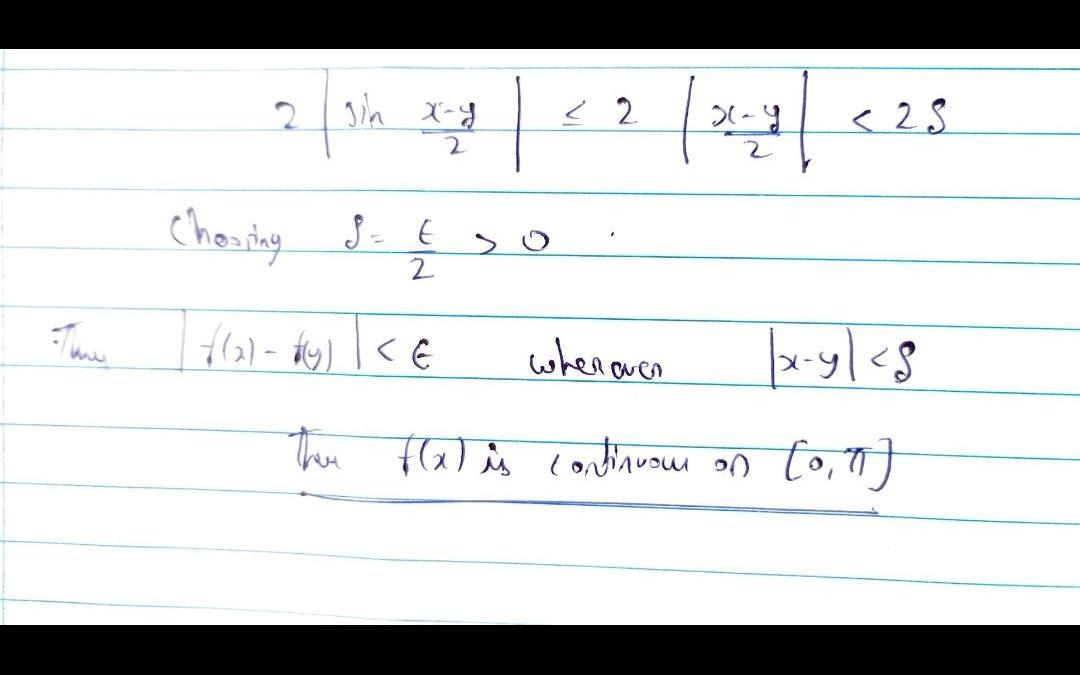 2 | sin (x-y)/2 | ≤ 2 | (x-y)/2 | < 2δ
Choosing δ = ε/2 > 0
Thus |f(x) - f(y)| < ε whenever |x-y| < δ
Thus f(x) is continuous on [0, π]